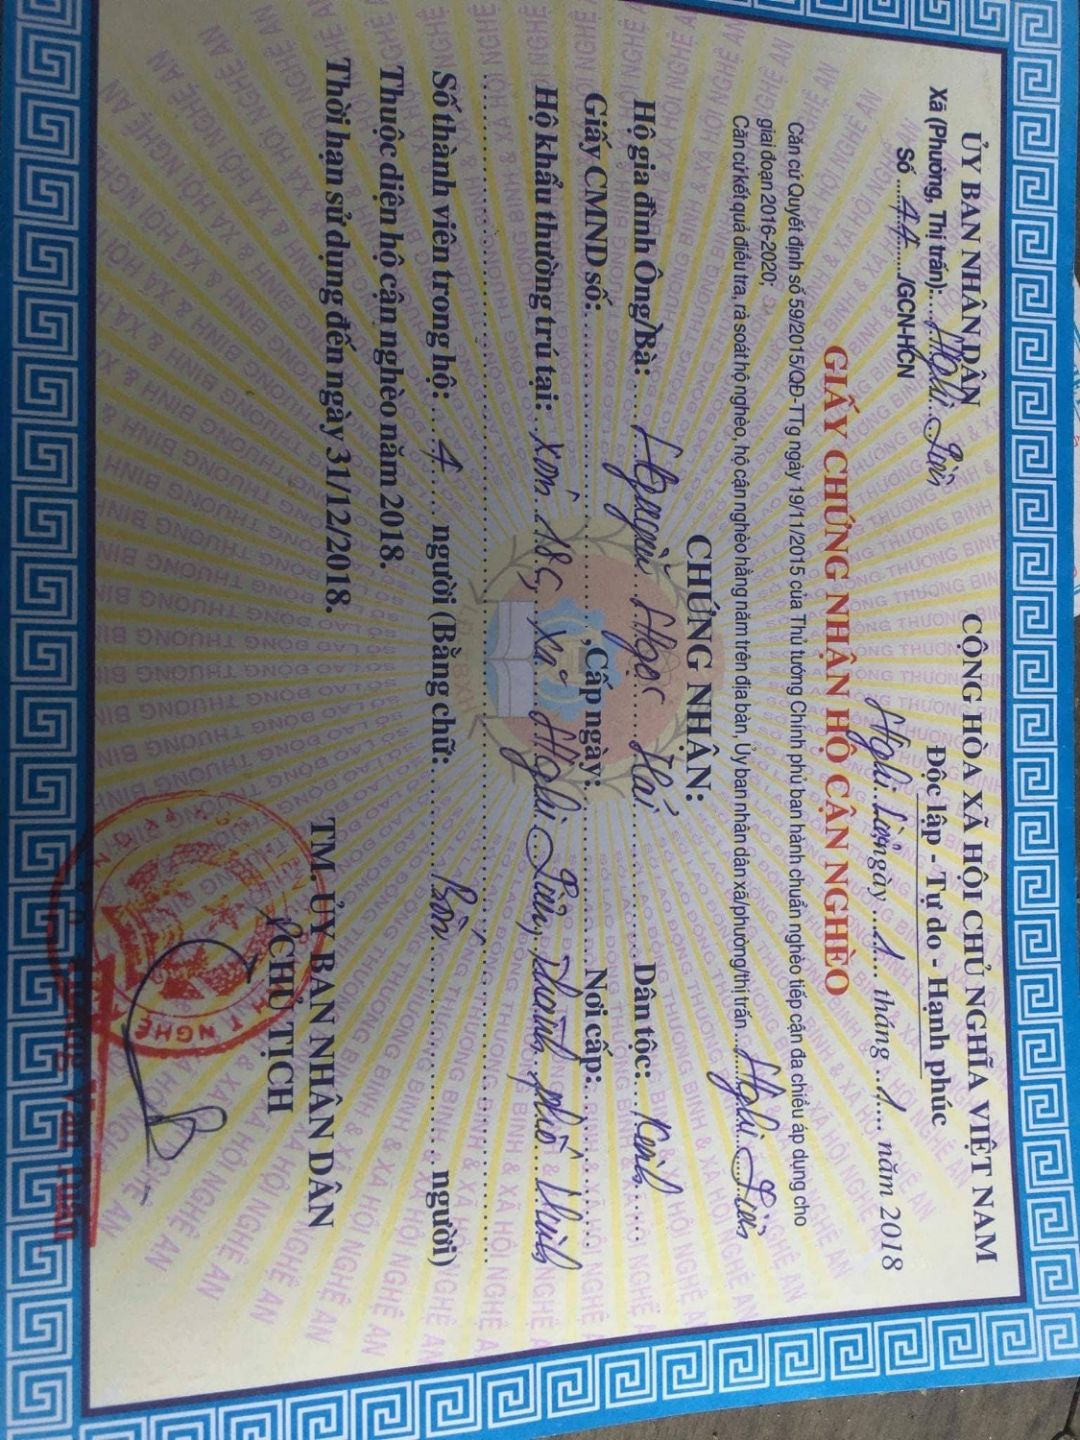 ỦY BAN NHÂN DÂN
Xã (Phường, Thị trấn):... Nghi Liên
Số ...44.../GCN-HCN
CỘNG HÒA XÃ HỘI CHỦ NGHĨA VIỆT NAM
Độc lập - Tự do - Hạnh phúc
Nghi Liên ngày ...1... tháng ...1... năm 2018
GIẤY CHỨNG NHẬN HỘ CẬN NGHÈO
Căn cứ Quyết định số 59/2015/QĐ-TTg ngày 19/11/2015 của Thủ tướng Chính phủ ban hành chuẩn nghèo tiếp cận đa chiều áp dụng cho
giai đoạn 2016-2020;
Căn cứ kết quả điều tra, rà soát hộ nghèo, hộ cận nghèo hằng năm trên địa bàn, Ủy ban nhân dân xã/phường/thị trấn ... Nghi Liên
CHỨNG NHẬN:
Hộ gia đình Ông/Bà: ... Nguyễn Ngọc Hải ... Dân tộc: ... Kinh ...
Giấy CMND số: ... ,Cấp ngày: ... Nơi cấp: ...
Hộ khẩu thường trú tại: Xóm 18C, Xã Nghi Liên, Thành phố Vinh
Số thành viên trong hộ: ... 4 ... người (Bằng chữ: ... Bốn ... người)
Thuộc diện hộ cận nghèo năm 2018.
Thời hạn sử dụng đến ngày 31/12/2018.
TM. ỦY BAN NHÂN DÂN
CHỦ TỊCH